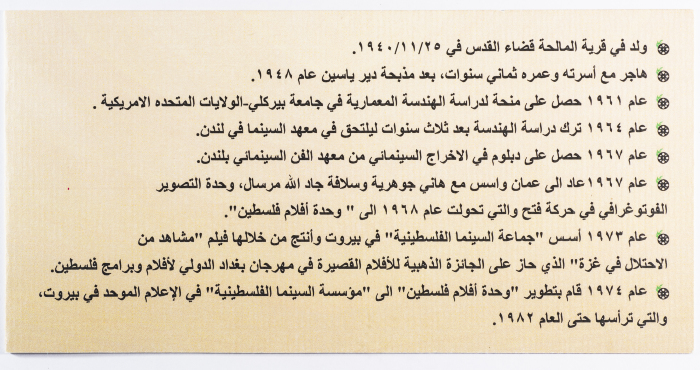 ولد في قرية المالحة قضاء القدس في ١٩٤٠/١١/٢٥.
هاجر مع أسرته وعمره ثماني سنوات، بعد مذبحة دير ياسين عام ١٩٤٨.
عام ١٩٦١ حصل على منحة لدراسة الهندسة المعمارية في جامعة بيركلي-الولايات المتحده الامريكية .
عام ١٩٦٤ ترك دراسة الهندسة بعد ثلاث سنوات ليلتحق في معهد السينما في لندن.
عام ١٩٦٧ حصل على دبلوم في الاخراج السينمائي من معهد الفن السينمائي بلندن.
عام ١٩٦٧عاد الى عمان واسس مع هاني جوهرية وسلافة جاد الله مرسال، وحدة التصوير
الفوتوغرافي في حركة فتح والتي تحولت عام ١٩٦٨ الى " وحدة أفلام فلسطين".
عام ١٩٧٣ أسس "جماعة السينما الفلسطينية" في بيروت وأنتج من خلالها فيلم "مشاهد من
الاحتلال في غزة" الذي حاز على الجائزة الذهبية للأفلام القصيرة في مهرجان بغداد الدولي لأفلام وبرامج فلسطين.
عام ١٩٧٤ قام بتطوير "وحدة أفلام فلسطين" الى "مؤسسة السينما الفلسطينية" في الإعلام الموحد في بيروت،
والتي ترأسها حتى العام ١٩٨٢.